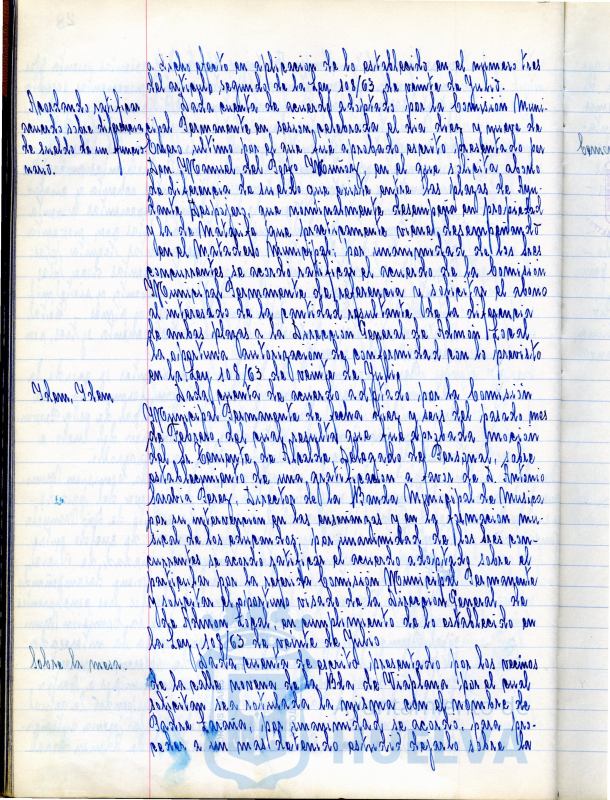 a dicho efecto en aplicación de lo establecido en el número tres
del artículo segundo de la Ley 108/63 de veinte de Julio.
Acordando ratificar
acuerdo sobre diferencia
de sueldo de un funcio-
nario.
Dada cuenta de acuerdo adoptado por la Comisión Muni-
cipal Permanente en sesión celebrada el día diez y nueve de
Enero último por el que fué aprobado escrito presentado por
Don Manuel del Pozo Muñoz, en el que solicita abono
de diferencia de sueldo que existe entre las plazas de Ayu-
dante Despojero que nominalmente desempeña en propiedad
y la de Matarife que prácticamente viene desempeñando
en el Matadero Municipal; por unanimidad de los Sres
concurrentes se acordó ratificar el acuerdo de la Comisión
Municipal Permanente de referencia y solicitar el abono
al interesado de la cantidad resultante de la diferencia
de ambas plazas a la Dirección General de Admón Local
la oportuna autorización, de conformidad con lo previsto
en la Ley 108/63 de veinte de Julio
Idem, Idem
Dada cuenta de acuerdo adoptado por la Comisión
Municipal Permanente de fecha diez y seis del pasado mes
de Febrero, del cual resulta que fué aprobada moción
del Sr Teniente de Alcalde, Delegado de Personal, sobre
establecimiento de una gratificación a favor de D. Antonio
Sarabia Perez, Director de la Banda Municipal de Música
por su intervención en las enseñanzas y en la formación mu-
sical de los educandos; por unanimidad de los Sres con-
currentes se acordó ratificar el acuerdo adoptado sobre el
particular por la referida Comisión Municipal Permanente
y solicitar el oportuno visado de la Dirección General de
de Admon Local, en cumplimiento de lo establecido en
la Ley 108/63 de veinte de Julio
Sobre la mesa.
Dada cuenta de escrito presentado por los vecinos
de la calle novena de la Bda de Viaplana por el cual
solicitan sea rotulada la misma con el nombre de
Padre Laraña, por unanimidad se acordó, para pro-
ceder a un mas detenido estudio dejarlo sobre la
HUELVA